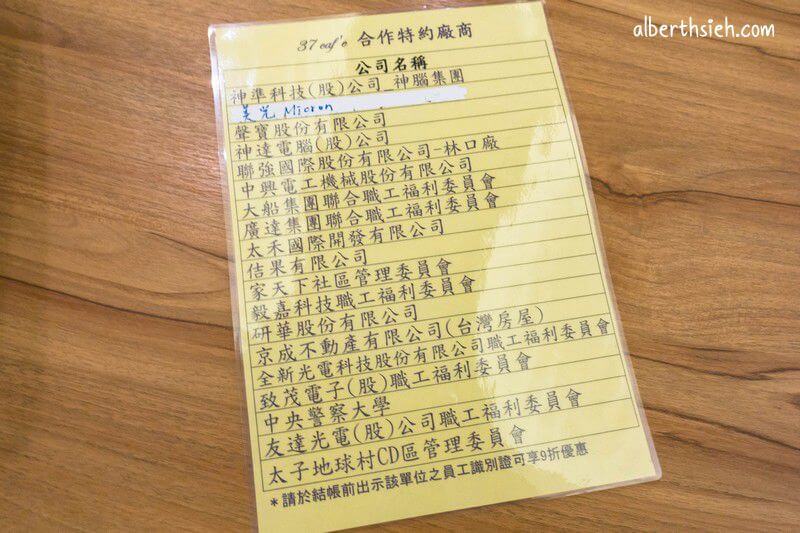 alberthsieh.com
37 caf'e 合作特約廠商
公司名稱
神準科技(股)公司_神腦集團
美光 Micron
聲寶股份有限公司
神達電腦(股)公司
聯強國際股份有限公司-林口廠
中興電工機械股份有限公司
大船集團聯合職工福利委員會
廣達集團聯合職工福利委員會
太禾國際開發有限公司
佶果有限公司
家天下社區管理委員會
毅嘉科技職工福利委員會
研華股份有限公司
京成不動產有限公司(台灣房屋)
全新光電科技股份有限公司職工福利委員會
致茂電子(股)職工福利委員會
中央警察大學
友達光電(股)公司職工福利委員會
太子地球村CD區管理委員會
*請於結帳前出示該單位之員工識別證可享9折優惠